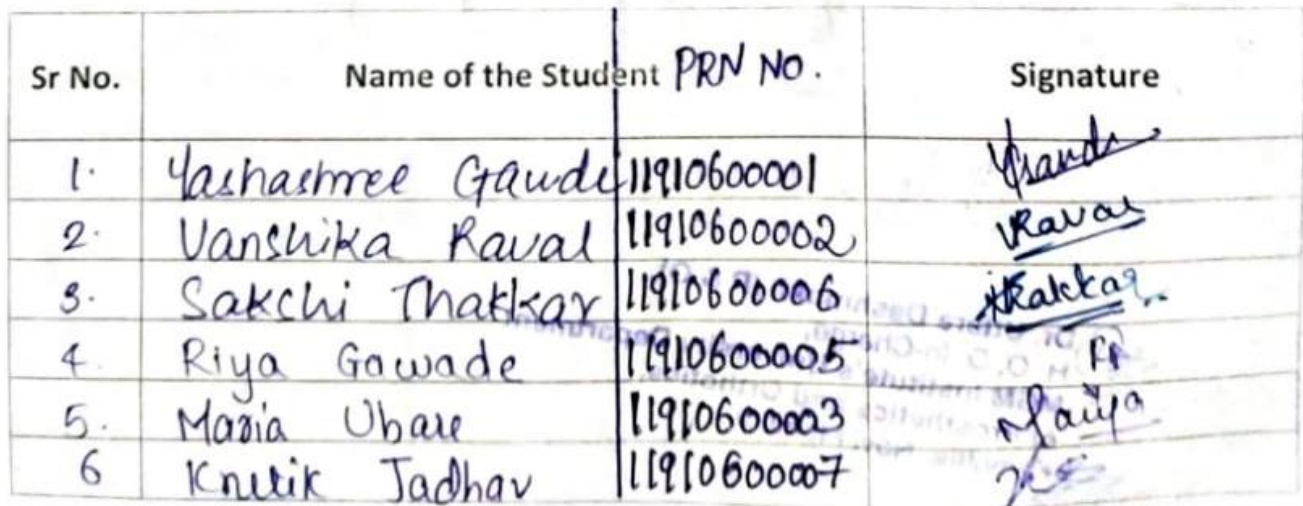 Sr No. Name of the Student PRN NO. Signature
1. Yashashree Gaude 11910600001 YGaude
2. Vanshika Raval 11910600002 VRaval
3. Sakshi Thakkar 11910600006 Thakkar
4. Riya Gawade 11910600005
5. Maria Ubare 11910600003
6 Krutik Jadhav 11910600007